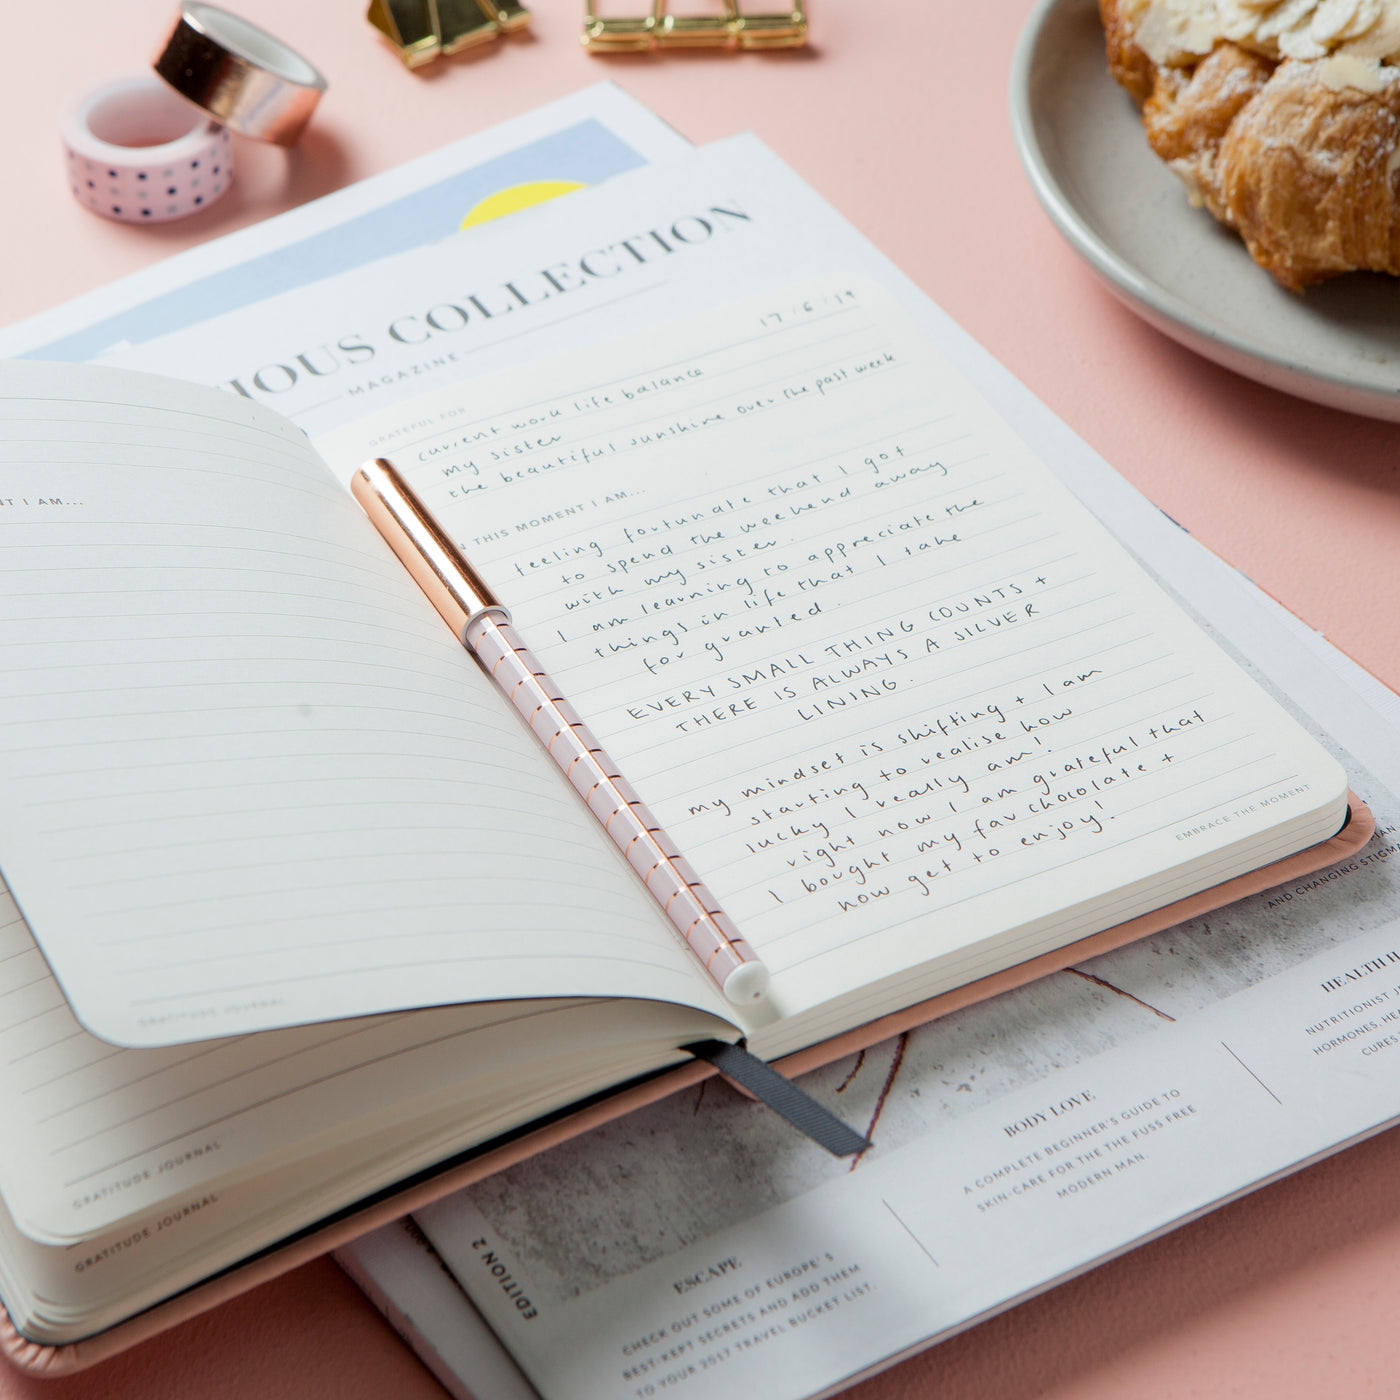 IOUS COLLECTION
MAGAZINE
17/6/19
GRATEFUL FOR
current work life balance
my sister
the beautiful sunshine over the past week
THIS MOMENT I AM...
feeling fortunate that I got
to spend the weekend away
with my sister.
I am learning to appreciate the
things in life that I take
for granted.
EVERY SMALL THING COUNTS +
THERE IS ALWAYS A SILVER
LINING.
my mindset is shifting + I am
starting to realise how
lucky I really am!
right now I am grateful that
I bought my fav chocolate +
now get to enjoy!
EMBRACE THE MOMENT
NT I AM...
GRATITUDE JOURNAL
GRATITUDE JOURNAL
GRATITUDE JOURNAL
AND CHANGING STIGMA
HEALTH H
NUTRITIONIST J
HORMONES, HEA
CURES
BODY LOVE
A COMPLETE BEGINNER'S GUIDE TO
SKIN-CARE FOR THE THE FUSS FREE
MODERN MAN.
EDITION 2
ESCAPE
CHECK OUT SOME OF EUROPE'S
BEST-KEPT SECRETS AND ADD THEM
TO YOUR 2017 TRAVEL BUCKET LIST.